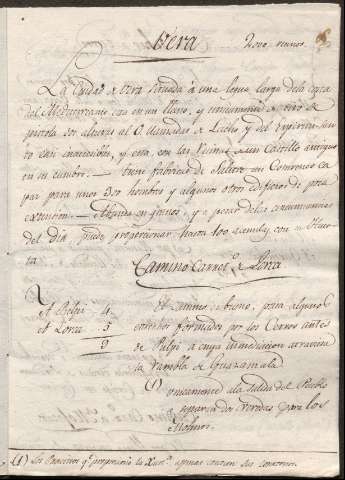 Vera
La Ciudad de Vera situada á una legua larga de la costa
del Mediterraneo esta en un llano, y unicamente á tiro de
pistola dos alturas al O. llamadas de Ladro y del Espiritu San-
to esta inaccesible, y esta, con las Ruinas de un Castillo antiguo
en su cumbre. — tiene fabricas de Salitre un Convento ca
paz para unos 300 hombres y algunos otros edificios de poca
extension. — Abunda en granos, y á pesar de las circunstancias
del dia, puede proporcionar hasta 100 acemilas, con su Huer
ta
Camino Carret.º á Lorca
A Pulpi 4
A Lorca 5
9
El camino es bueno, pasa algunos
estrechos formados por los Cerros antes
de Pulpi á cuya inmediacion atraviesa
la rambla de Guazamara.
Unicamente á la salida del Pueblo
separan dos veredas para los
Molinos.
(1) Los Practicos q.e proporciona la Just.a apenas conocen sus contornos.